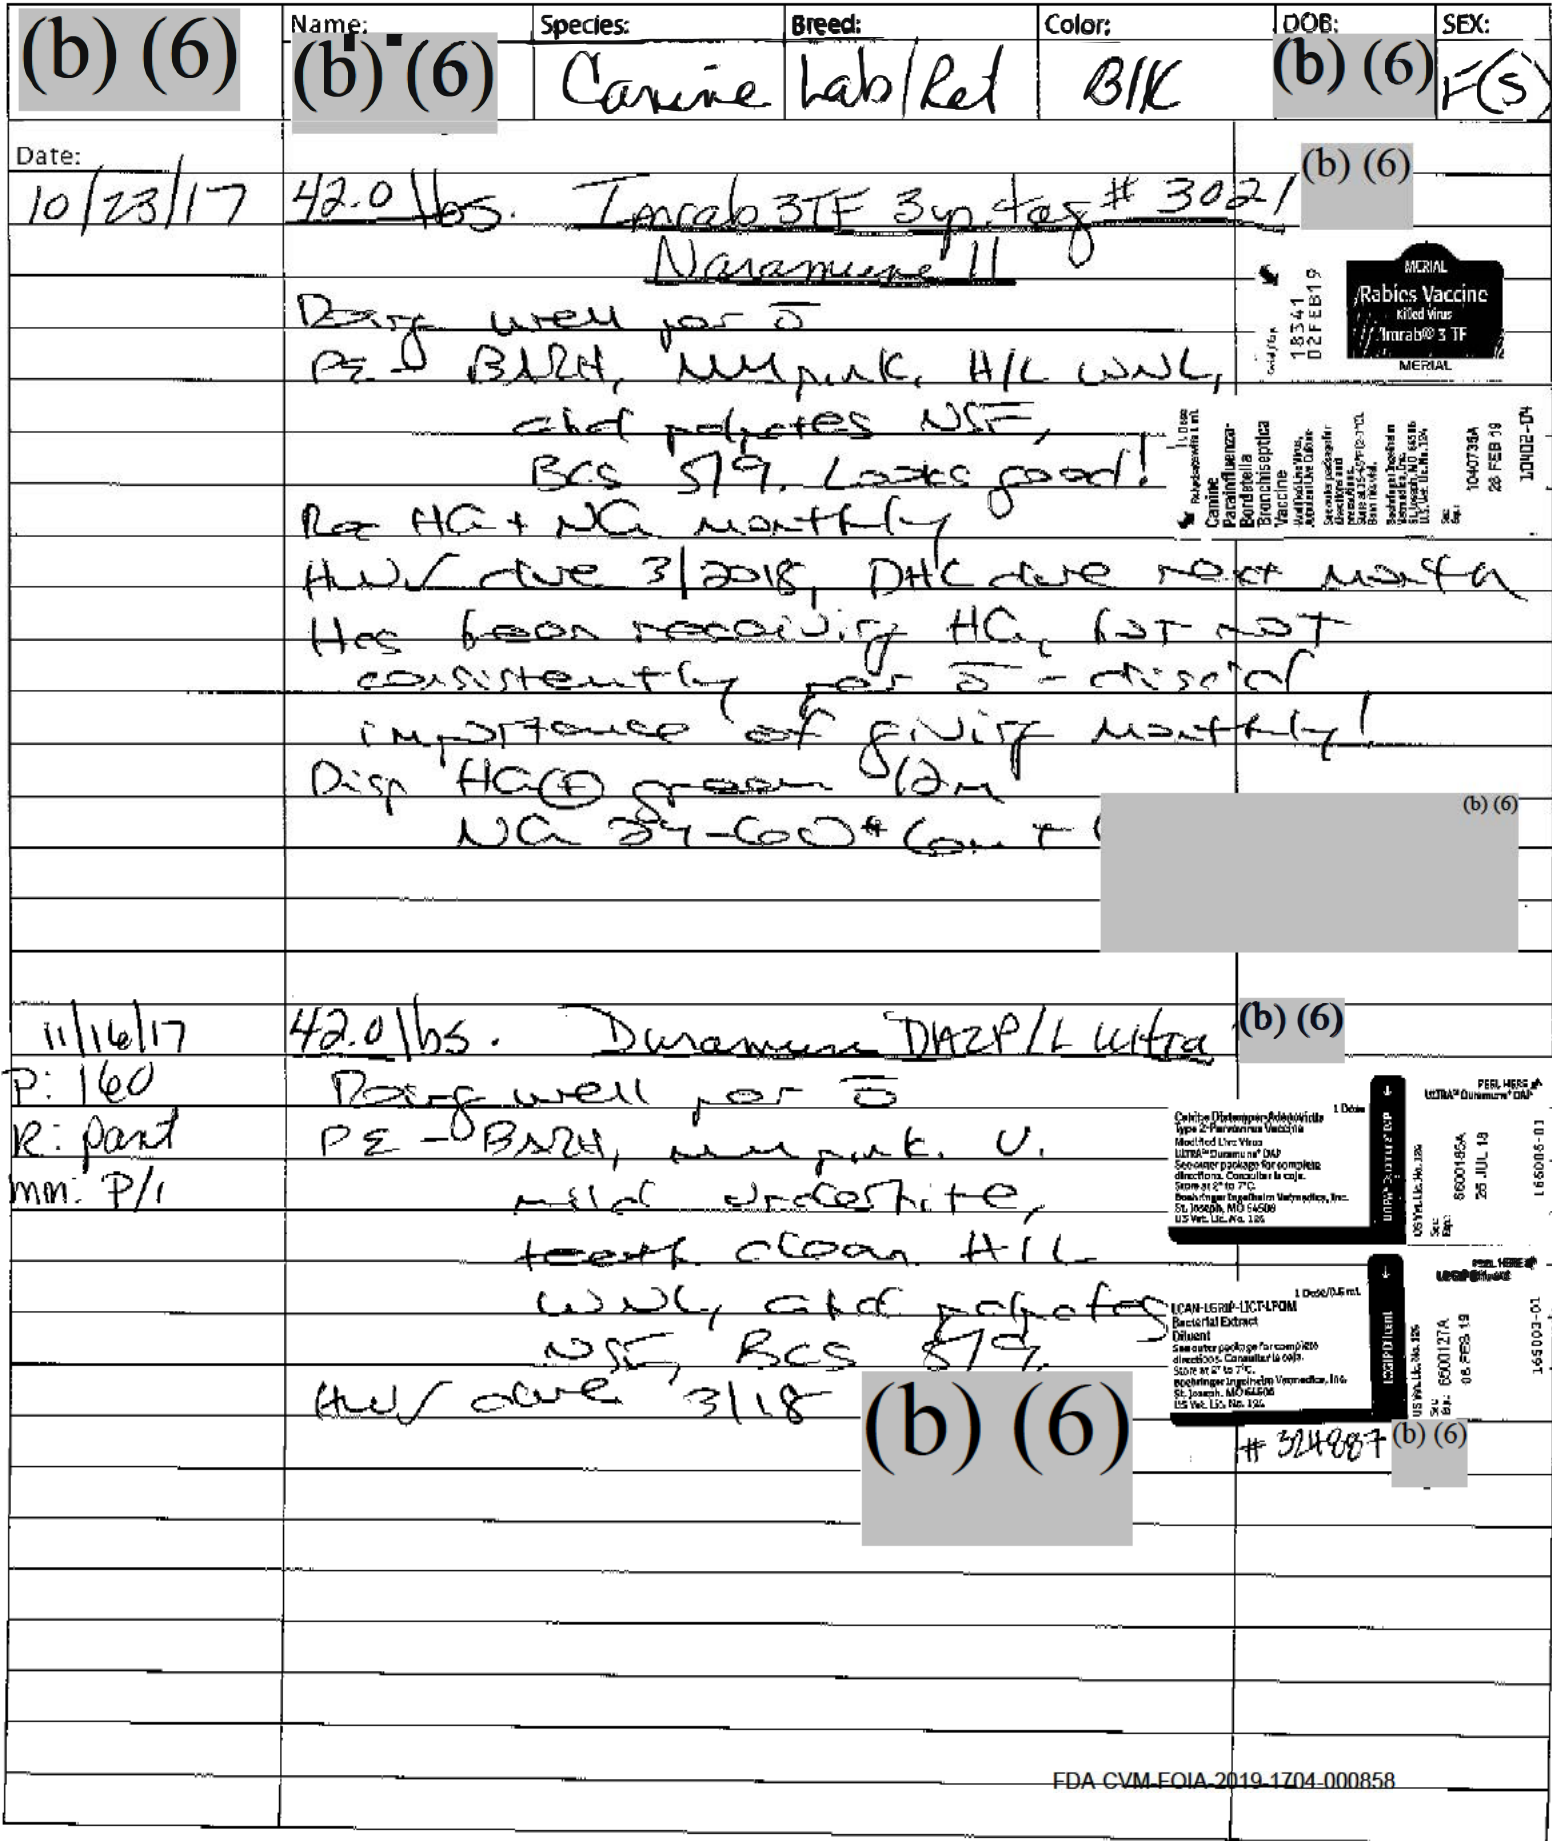 (b) (6)
Name: (b) (6)
Species: Canine
Breed: Lab/Ret
Color: Blk
DOB: (b) (6)
SEX: F(S)
Date:
10/23/17 42.0 lbs. Imrab 3TF 3yr. tag # 3021 (b) (6)
Naramune II
Doing well per ō
PE - BARH, MM pink, H/L WNL,
abd palpates NSF,
BCS 5/9. Looks good!
Rec HG + NG monthly
HW✓ due 3/2018, DHL due next month
Has been receiving HG, but not
consistently per ō - disc'd
importance of giving monthly!
Disp HG(+) green 12m
NG 24-60# 6m +
(b) (6)
18341
02FEB19
MERIAL
Rabies Vaccine
Killed Virus
Imrab® 3 TF
MERIAL
1 Dose
Canine
Parainfluenza-
Bordetella
Bronchiseptica
Vaccine
1040735A
26 FEB 19
10402-04
11/16/17 42.0 lbs. Duramune DA2P/L Ultra (b) (6)
P: 160 Doing well per ō
R: pant PE - BARH, mm pink. U.
mm: P/1 mild underbite,
teeth clean H/L
WNL, abd palpates
NSF, BCS 5/9.
HW✓ due 3/18
(b) (6)
1 Dose
Canine Distemper-Adenovirus
Type 2-Parvovirus Vaccine
Modified Live Virus
ULTRA™ Duramune® DAP
See outer package for complete
directions. Consulter la caja.
Store at 2° to 7°C.
Boehringer Ingelheim Vetmedica, Inc.
St. Joseph, MO 64506
US Vet. Lic. No. 124
PEEL HERE
ULTRA™ Duramune® DAP
US Vet. Lic. No. 124
Ser:
Exp:
6600185A
25 JUL 18
166006-01
1 Dose/0.5 mL
LCAN-LGRIP-LICT-LPOM
Bacterial Extract
Diluent
See outer package for complete
directions. Consulter la caja.
Store at 2° to 7°C.
Boehringer Ingelheim Vetmedica, Inc.
St. Joseph, MO 64506
US Vet. Lic. No. 124
LCGIP Diluent
PEEL HERE
LCGIP Diluent
US Vet. Lic. No. 124
Ser: 6500127A
Exp: 06 FEB 19
165003-01
# 324887 (b) (6)
FDA-CVM-FOIA-2019-1704-000858